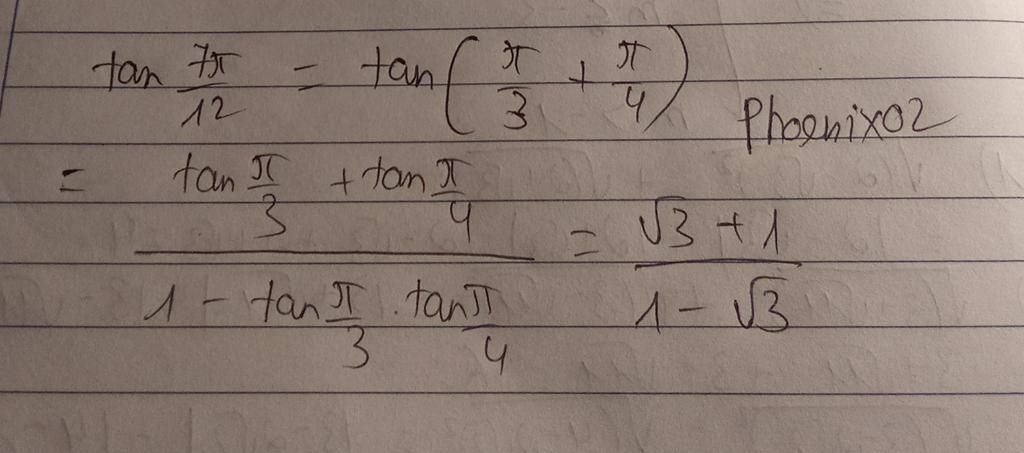 tan 7π/12 = tan(π/3 + π/4)
Phoenix02
= (tan π/3 + tan π/4)/(1 - tan π/3 . tan π/4) = (√3 + 1)/(1 - √3)